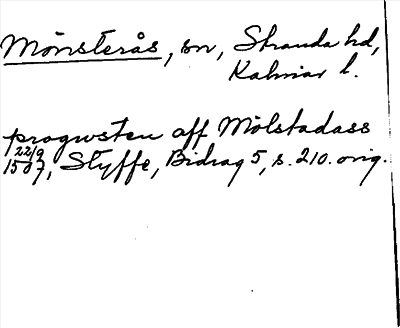 Mönsterås, sn, Stranda hd,
Kalmar l.
progwsten aff Mölstadass
22/9 1507, Styffe, Bidrag 5, s. 210. orig.